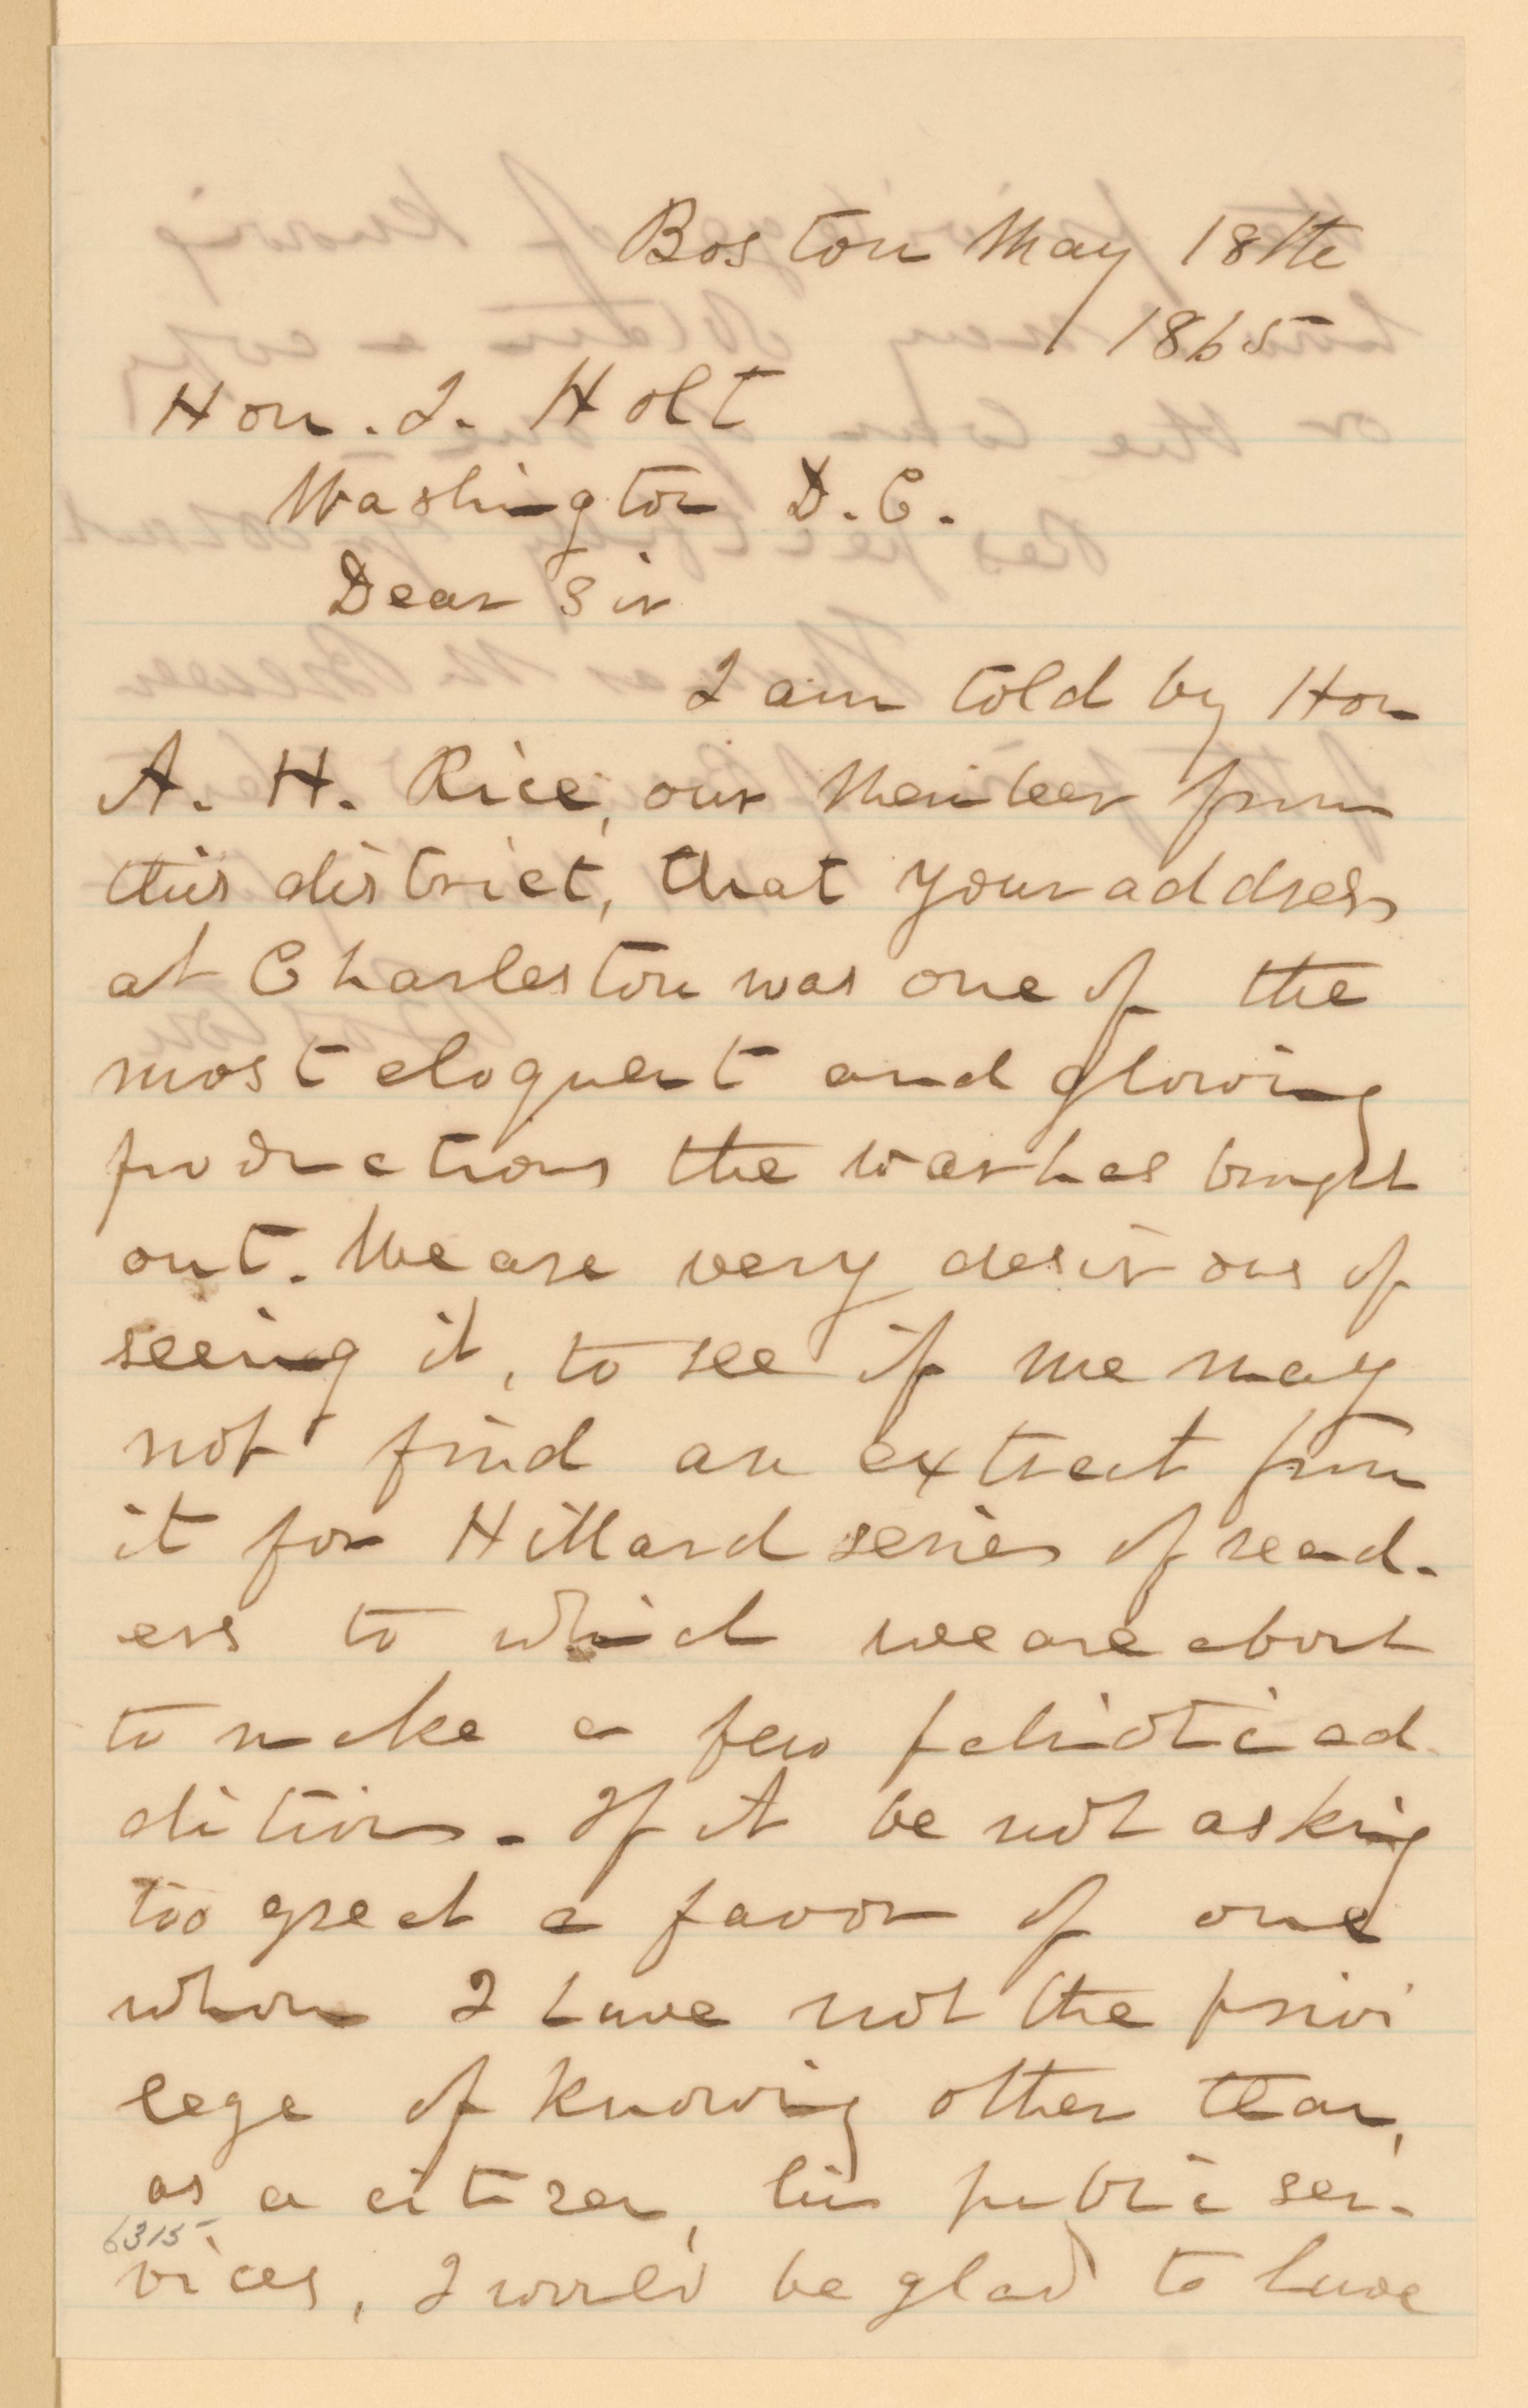 Boston May 18th
1865
Hon. J. Holt
Washington D.C.
Dear Sir
I am told by Hon
A. H. Rice, our Member from
this district, that your address
at Charleston was one of the
most eloquent and glowing
productions the war has brought
out. We are very desirous of
seeing it, to see if we may
not find an extract from
it for Hillard series of read-
ers to which we are about
to make a few patriotic ad
ditions. If it be not asking
too great a favor of one
whom I have not the privi
lege of knowing other than,
as a citizen, his public ser-
6315
vices, I would be glad to have